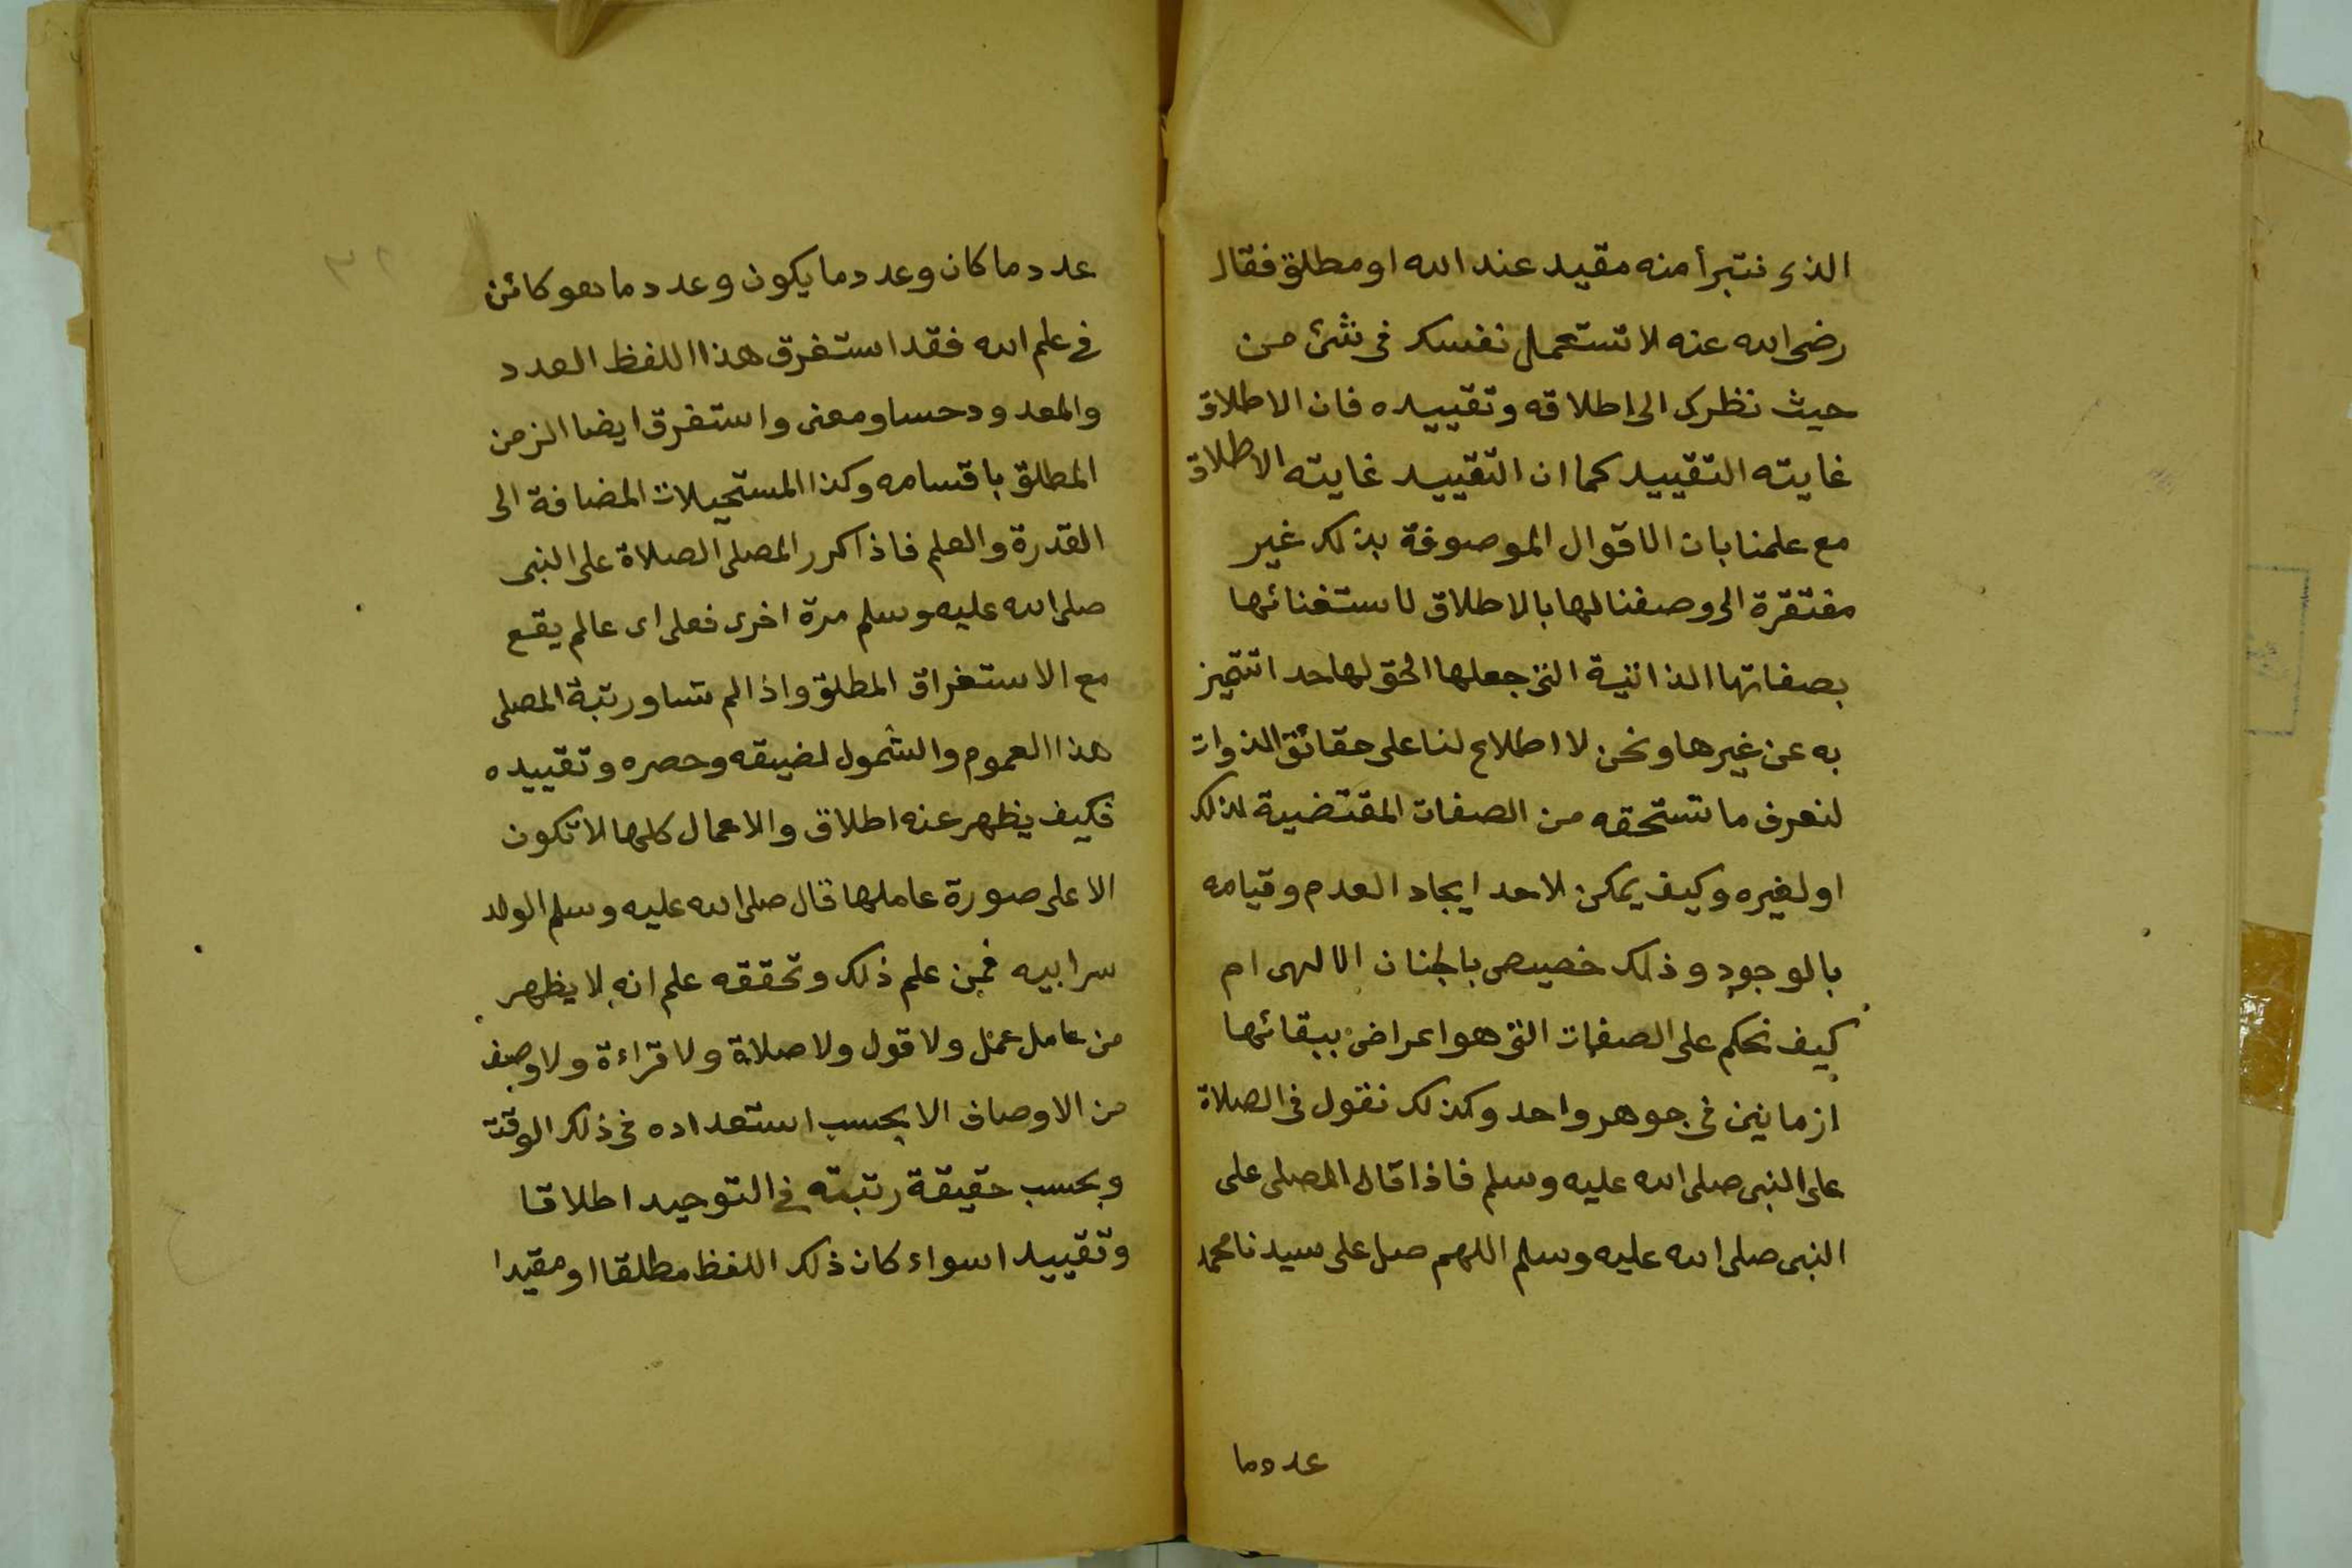 الذى نتبرأ منه مقيد عند الله او مطلق فقال
رضى الله عنه لا تستعمل نفسك فى شئ من
حيث نظرك الى اطلاقه وتقييده فان الاطلاق
غايته التقييد كما ان التقييد غايته الاطلاق
مع علمنا بان الاقوال الموصوفة بذلك غير
مفتقرة الى وصفنا لها بالاطلاق لاستغنائها
بصفاتها الذاتية التى جعلها الحق لها حدا تتميز
به عن غيرها ونحن لا اطلاع لنا على حقائق الذوات
لنعرف ما تستحقه من الصفات المقتضية لذلك
او لغيره وكيف يمكن لاحد ايجاد العدم وقيامه
بالوجود وذلك خصيص بالجناب الالهى ام
كيف نحكم على الصفات التى هو اعراض ببقائها
ازمانين فى جوهر واحد وكذلك نقول فى الصلاة
على النبى صلى الله عليه وسلم فاذا قال المصلى على
النبى صلى الله عليه وسلم اللهم صل على سيدنا محمد
عدد ما
٣٢
عدد ما كان وعدد ما يكون وعدد ما هو كائن
فى علم الله فقد استغرق هذا اللفظ العدد
والمعدود حسا ومعنى واستغرق ايضا الزمن
المطلق باقسامه وكذا المستحيلات المضافة الى
القدرة والعلم فاذا كرر المصلى الصلاة على النبى
صلى الله عليه وسلم مرة اخرى فعلى اى عالم يقع
مع الاستغراق المطلق واذا لم تساو رتبة المصلى
هذا العموم والشمول لضيقه وحصره وتقييده
فكيف يظهر عنه اطلاق والاعمال كلها لا تكون
الا على صورة عاملها قال صلى الله عليه وسلم الولد
سر ابيه فمن علم ذلك وتحققه علم انه لا يظهر
من عامل عمل ولا قول ولا صلاة ولا قراءة ولا وصف
من الاوصاف الا بحسب استعداده فى ذلك الوقت
وبحسب حقيقة رتبته فى التوحيد اطلاقا
وتقييدا سواء كان ذلك اللفظ مطلقا او مقيدا